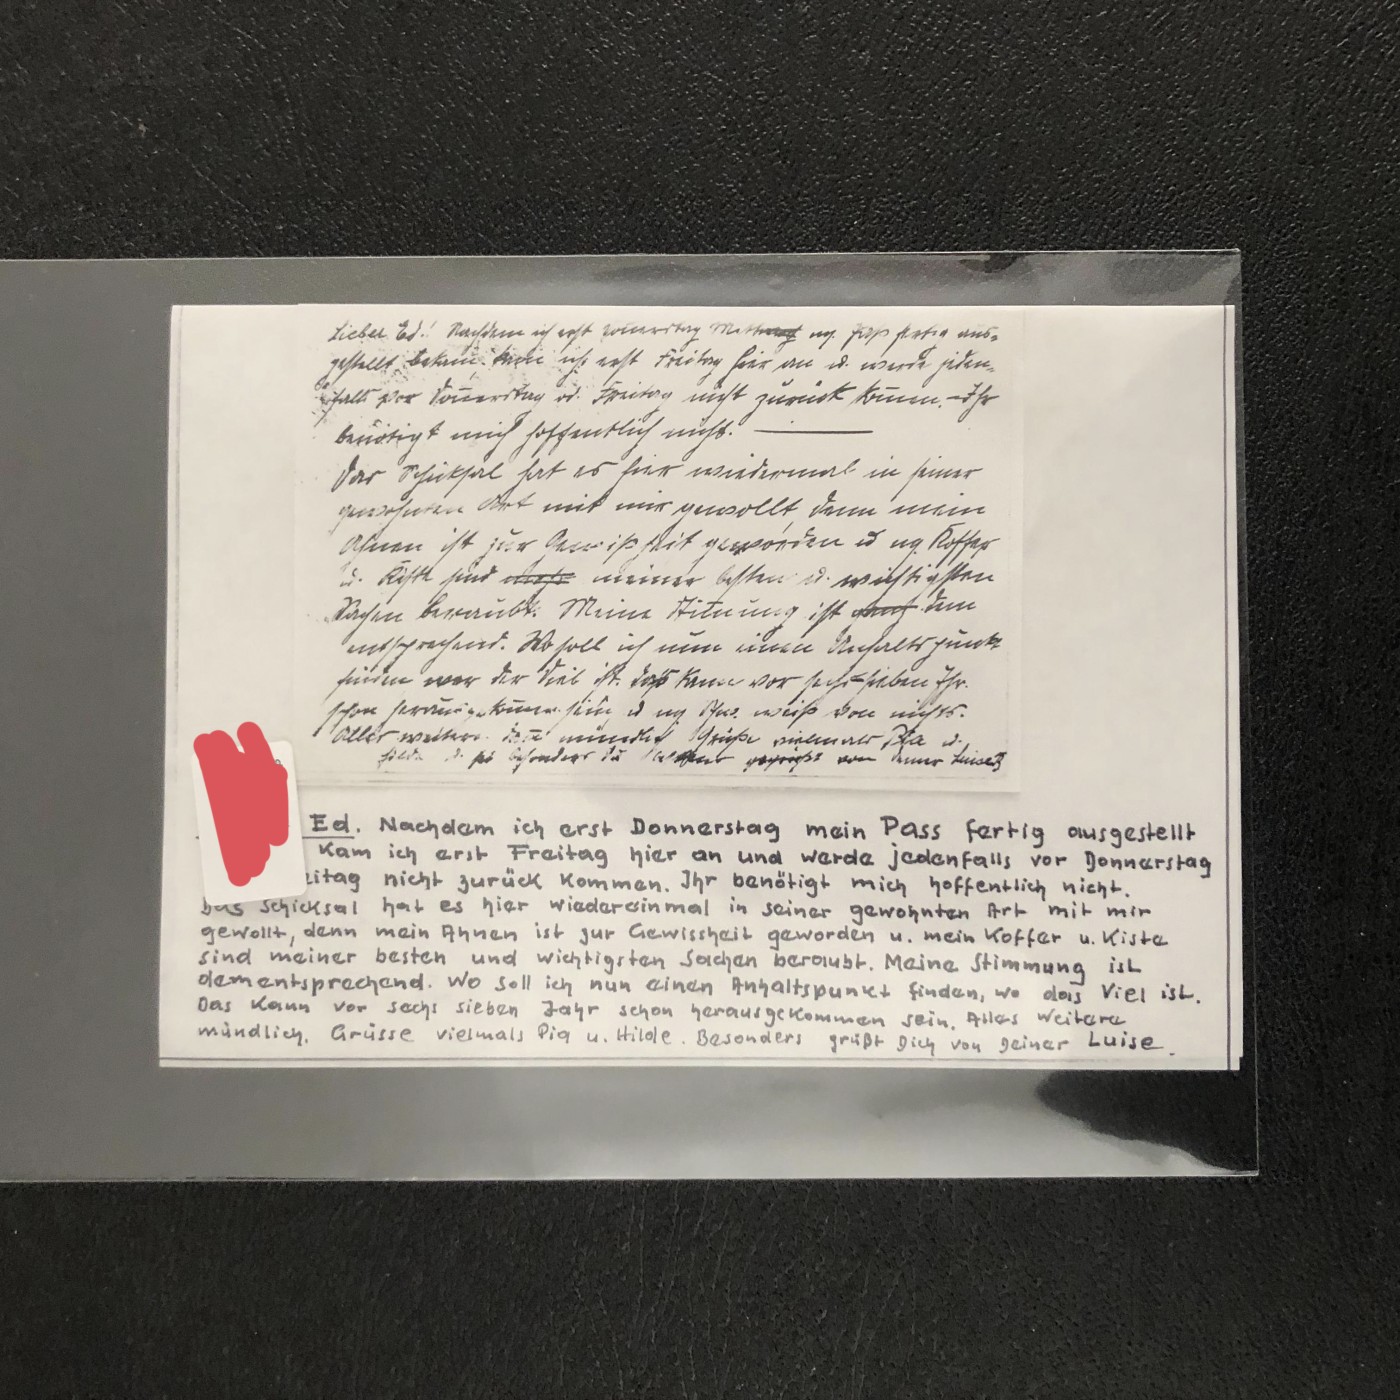 Lieber Ed.! Nachdem ich erst Donnerstag Mittag mein Pass fertig aus-
gestellt bekam, kam ich erst Freitag hier an u. werde jeden-
falls vor Donnerstag od. Freitag nicht zurück kommen. – Ihr
benötigt mich hoffentlich nicht. ———
Das Schicksal hat es hier wiedermal in seiner
gewohnten Art mit mir gewollt, denn mein
Ahnen ist zur Gewissheit geworden u. m. Koffer
u. Kiste sind meiner besten u. wichtigsten
Sachen beraubt. Meine Stimmung ist dem
entsprechend. Wo soll ich nun einen Anhaltspunkt
finden wer der Dieb ist. das kann vor sechs–sieben Jhr.
schon herausgekommen sein, u. m. weiß von nichts.
Alles weitere mündlich Grüße vielmals Pia u.
Hilde u. sei besonders Du gegrüßt von Deiner Luise
Ed. Nachdem ich erst Donnerstag mein Pass fertig ausgestellt
kam ich erst Freitag hier an und werde jedenfalls vor Donnerstag
eitag nicht zurück kommen. Ihr benötigt mich hoffentlich nicht.
Das Schicksal hat es hier wiedereinmal in seiner gewohnten Art mit mir
gewollt, denn mein Ahnen ist zur Gewissheit geworden u. mein Koffer u. Kiste
sind meiner besten und wichtigsten Sachen beraubt. Meine Stimmung ist
dementsprechend. Wo soll ich nun einen Anhaltspunkt finden, wo das Viel ist.
Das kann vor sechs sieben Jahr schon herausgekommen sein. Alles Weitere
mündlich. Grüsse vielmals Pia u. Hilde. Besonders grüßt Dich von Deiner Luise.